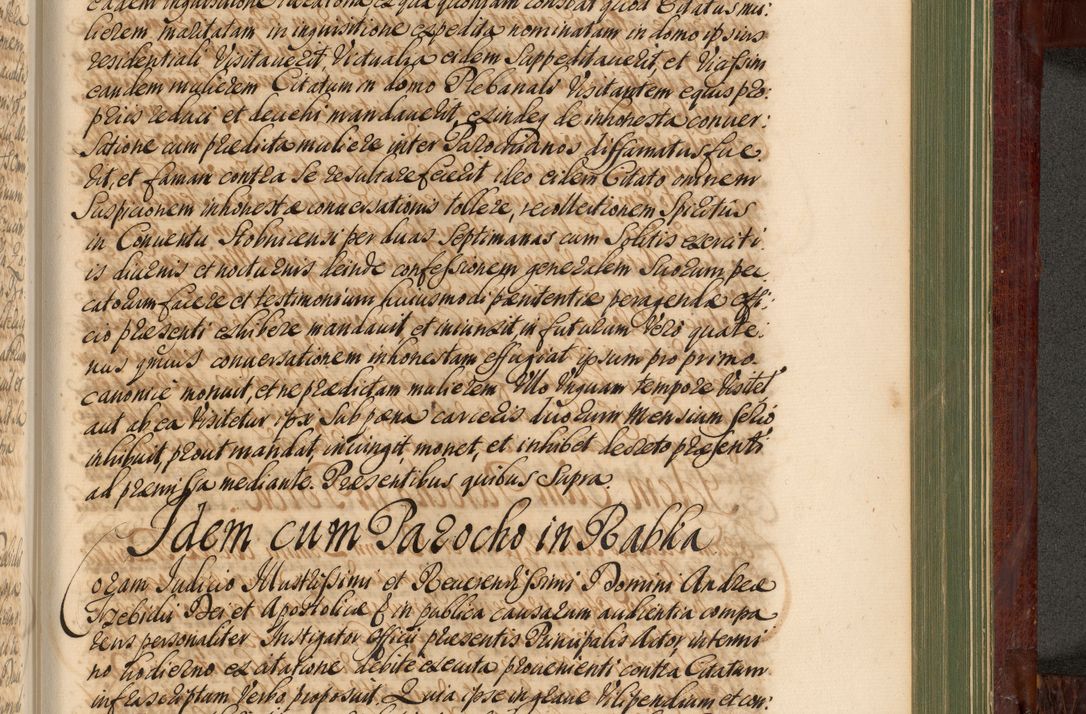 eadem inquisitione vacatione ex qua quoniam constat quod Citatus mu:
lierem maritatam in inquisitione expedita nominatam in domo ipsius
residentiali Visitaverit Victualia eidem Suppeditaverit, et Vicissim
eandem mulierem Citatum in domo Plebanali Visitantem equis pro:
priis reduci et devehi mandaverit, exindeq de inhonesta conver:
satione cum praedicta muliere inter Parochianos diffamatus fue
rit, et famam contra se resultare fecerit ideo eidem Citato omnem
Suspicionem inhonestae conversationis tollere, recollectionem Spiritus
in Conventu Stobnicensi per duas Septimanas cum Solitis exerciti
is diurnis et nocturnis deinde confessionem generalem Suorum pec
catorum facere et testimonium huiusmodi paenitentiae peragendae offi:
cio praesenti exhibere mandavit et iniunxit in futurum Vero quate:
nus qmvis conversationem inhonestam effugiat ipsum pro primo
canonice monuit, et ne praedictam mulierem Ullo Unquam tempore Visitet
aut ab ea Visitetur ipse sub paena carceris duorum Mensium Serio
inhibuit, prout mandat, iniungit, monet, et inhibet decreto praesenti
ad praemissa mediante. Praesentibus quibus Supra.
Idem cum Parocho in Rabka
Coram Iudicio Illustrissimi et Reverendissimi Domini Andreae
Trebidu Dei et Apostolicae & in publica causarum audientia compa
rens personaliter Instigator Officii praesentis Principalis Actor, in termi
no hodierno ex citatione debite executa provenienti contra Citatum
infrascriptum Verbo proposuit. Quia ipse in grave Vilipendium et con: